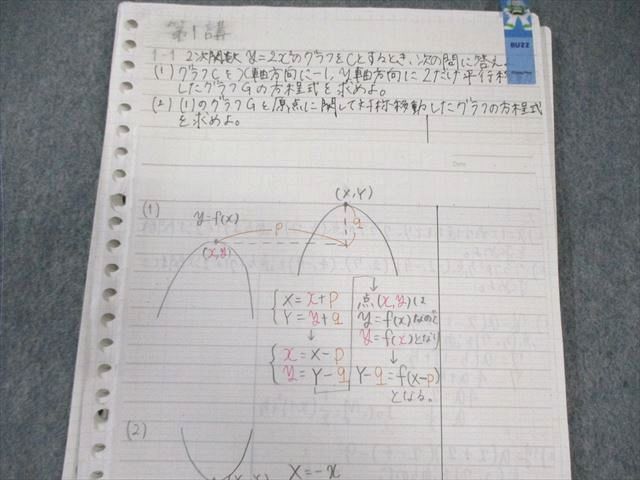 第1講
1-1 2次関数 y=2x²のグラフをCとするとき、次の問に答え
(1) グラフCをx軸方向に-1, y軸方向に2だけ平行移
したグラフGの方程式を求めよ。
(2) (1)のグラフGを原点に関して対称移動したグラフの方程式
を求めよ。
BUZZ
Date
(1)
y=f(x)
(x,y)
p
(X,Y)
q
X=x+p
Y=y+q
↓
x=X-p
y=Y-q
↓
点(x,y)は
y=f(x)なので
y=f(x)となり
↓
Y-q=f(x-p)
となる。
(2)
X=-x